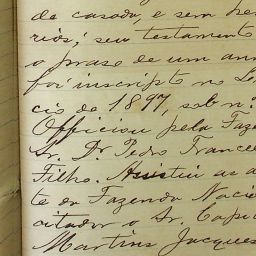 de casado, e sem her
rios; seu testamento
o praso de um ann
foi inscripto no Le
cio de 1897, sob n.
Officiou pela Faze
Sr. Dr. Pedro Francel
Filho. Assistiu as a
te da Fazenda Nacio
citador o Sr. Capi
Martins Jacques